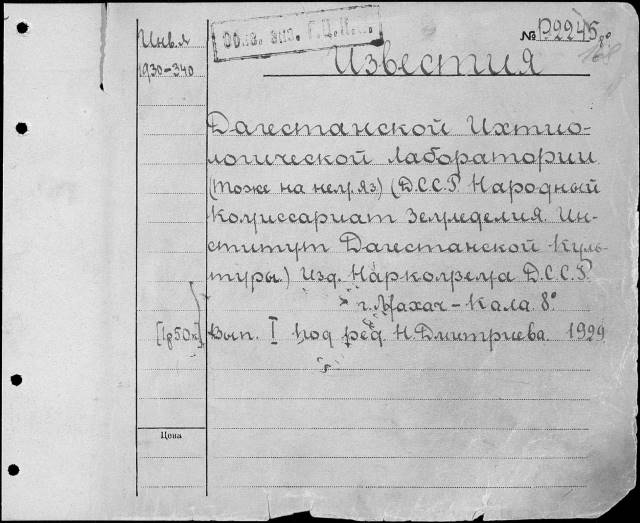 Инв.А
1930-340
№ Р2245
168
Известия
Дагестанской Ихтио-
логической лаборатории
(тоже на нем. яз.) (Д.С.С.Р. Народный
Комиссариат Земледелия. Ин-
ститут Дагестанской Куль-
туры.) Изд. Наркомзема Д.С.С.Р.
г. Махач-Кала. 8°
[1р50к] Вып. I под ред. Н. Дмитриева. 1929
Цена